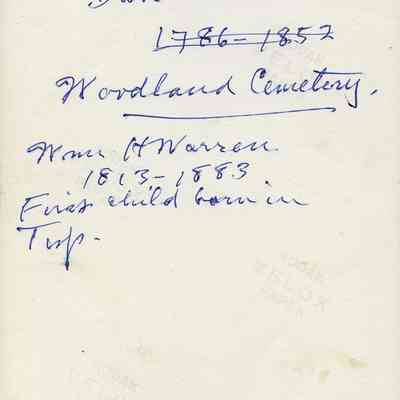 1786-1852
Woodland Cemetery.
Wm H Warren
1813-1883
First child born in
Twp.